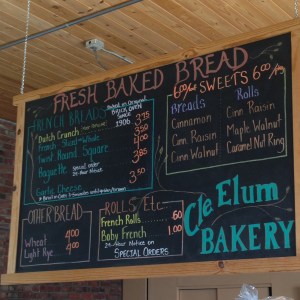 FRESH BAKED BREAD
FRENCH BREADS
Baked in Original
BRICK OVEN
SINCE
1906
Dutch Crunch 3.50
French
Twist Round Square
Baguette Special order
24-Hour Notice
Garlic Cheese
SWEETS 6.00
Breads Rolls
Cinnamon Cinn Raisin
Cinn. Raisin Maple Walnut
Cinn Walnut Caramel Nut Ring
OTHER BREAD
Wheat 4.00
Light Rye 4.00
ROLLS Etc
French Rolls .60
Baby French 1.00
24-Hour Notice on
SPECIAL ORDERS
Cle Elum
BAKERY